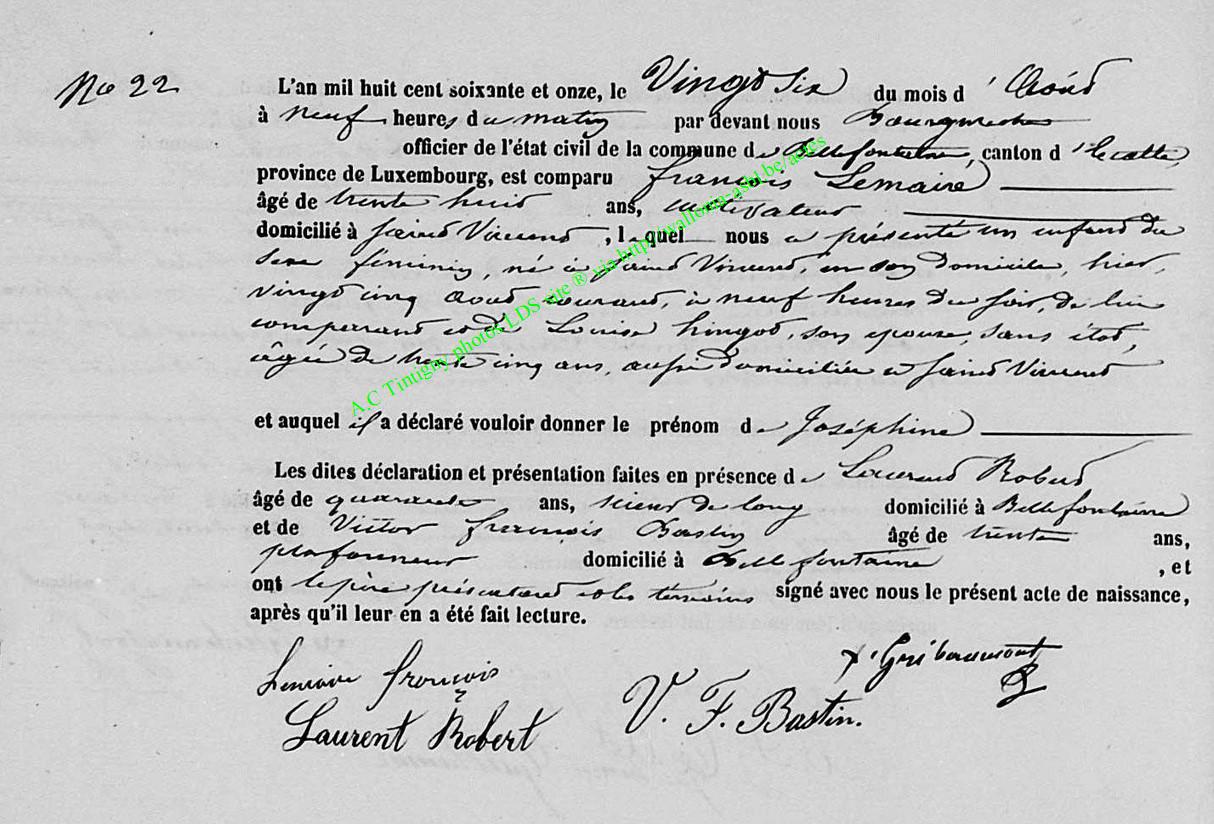 No 22
L'an mil huit cent soixante et onze, le Vingt Six du mois d'Août
à neuf heures du matin par devant nous Bourgmestre
officier de l'état civil de la commune de Bellefontaine, canton d'
province de Luxembourg, est comparu François Lemaire
âgé de trente huit ans, cultivateur
domicilié à Saint Vincent, lequel nous a présenté un enfant du
sexe féminin, né à Saint Vincent, en son domicile, hier,
vingt cinq Août courant, à neuf heures du soir, de lui
comparant et de Louise hingot, son épouse, sans état,
âgée de trente cinq ans, aussi domiciliée à Saint Vincent
et auquel il a déclaré vouloir donner le prénom de Joséphine
Les dites déclaration et présentation faites en présence de Laurent Robert
âgé de quarante ans, scieur de long domicilié à Bellefontaine
et de Victor François Bastin âgé de trente ans,
plafonneur domicilié à Bellefontaine, et
ont le père présentant et les témoins signé avec nous le présent acte de naissance,
après qu'il leur en a été fait lecture.
Lemaire françois
Laurent Robert
V. F. Bastin.
A.C Tintigny photos LDS site ® via http://wallonia-asbl.be/actes